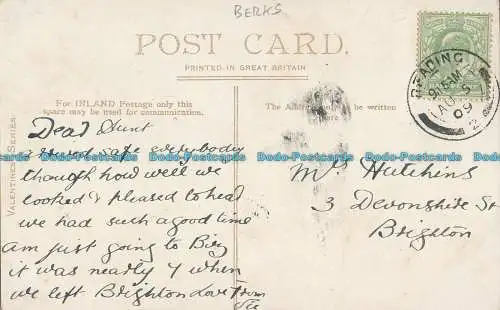 BERKS
POST CARD.
PRINTED IN GREAT BRITAIN
For INLAND Postage only this
space may be used for communication.
The Address to be written
here
VALENTINES SERIES
READING
9.15AM
AU 5
09
2
Dear Aunt
arrived safe everybody
though how well we
looked & pleased to hear
we had such a good time
am just going to Biz
it was nearly 7 when
we left Brighton Love from
Mrs Hutchins
3 Devonshire St
Brighton
Bodo-Postcards.co.uk Bodo-Postcards.co.uk Bodo-Postcards.co.uk